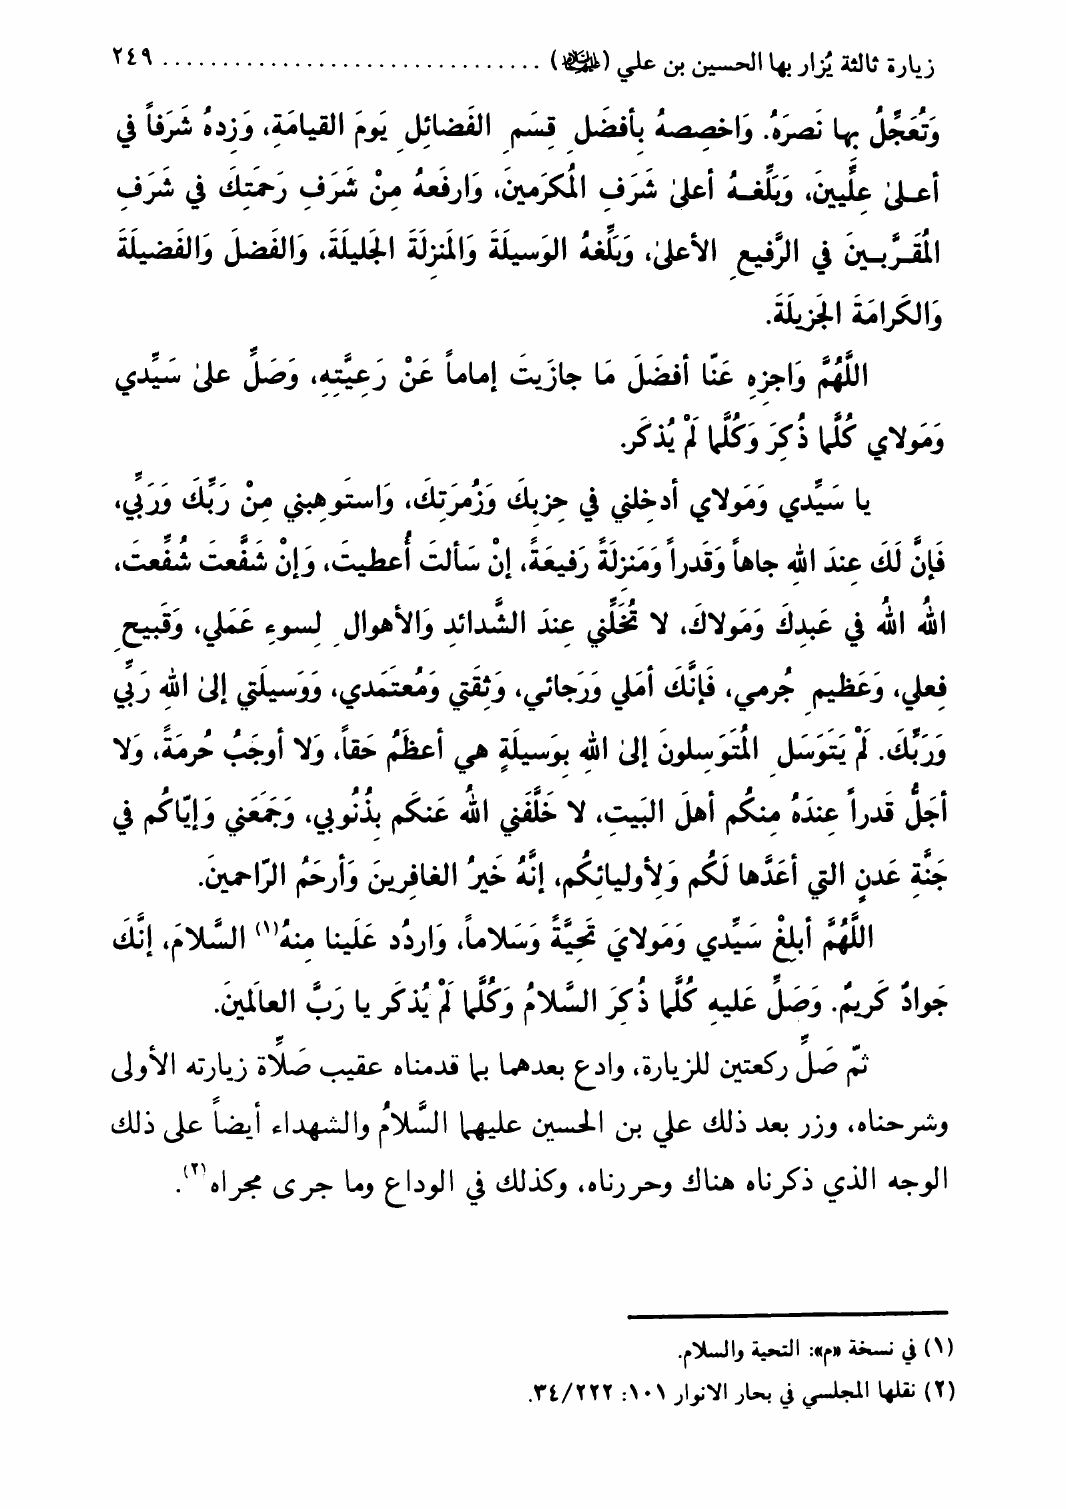 زيارة ثالثة يُزار بها الحسين بن علي (عليهما السلام) ................................ ٢٤٩
وَتُعَجِّلُ بِها نَصرَهُ. وَاخصِصهُ بِأفضَلِ قِسَمِ الفَضائلِ يَومَ القيامَةِ، وَزِدهُ شَرَفاً في
أعـلىٰ عِلِّيينَ، وَبَلِّغـهُ أعلىٰ شَرَفِ المُكرَمينَ، وَارفَعهُ مِنْ شَرَفِ رَحمَتِكَ في شَرَفِ
المُقَـرَّبـينَ في الرَّفيعِ الأعلىٰ، وَبَلِّغهُ الوَسيلَةَ وَالمَنزِلَةَ الجَليلَةَ، وَالفَضلَ وَالفَضيلَةَ
وَالكَرامَةَ الجَزيلَةَ.
اللَّهُمَّ وَاجزِهِ عَنّا أفضَلَ مَا جازَيتَ إماماً عَنْ رَعِيَّتِهِ، وَصَلِّ علىٰ سَيِّدي
وَمَولاي كُلَّما ذُكِرَ وَكُلَّما لَمْ يُذكَر.
يا سَيِّدي وَمَولاي أدخِلني في حِزبِكَ وَزُمرَتِكَ، وَاستَوهِبني مِنْ رَبِّكَ وَرَبِّي،
فَإنَّ لَكَ عِندَ اللهِ جاهاً وَقَدراً وَمَنزِلَةً رَفيعَةً، إنْ سَألتَ أُعطيتَ، وَإنْ شَفَّعتَ شُفِّعتَ،
اللهُ اللهُ في عَبدِكَ وَمَولاكَ، لا تُخَلِّني عِندَ الشَّدائدِ وَالأهوالِ لِسوءِ عَمَلي، وَقَبيحِ
فِعلي، وَعَظيمِ جُرمي، فَإنَّكَ أمَلي وَرَجائي، وَثِقَتي وَمُعتَمَدي، وَوَسيلَتي إلىٰ اللهِ رَبِّي
وَرَبِّكَ. لَمْ يَتَوَسَلِ المُتَوَسِلونَ إلىٰ اللهِ بِوَسيلَةٍ هي أعظَمُ حَقاً، وَلا أوجَبُ حُرمَةً، وَلا
أجَلُّ قَدراً عِندَهُ مِنكُم أهلَ البَيتِ، لا خَلَّفَني اللهُ عَنكَم بِذُنُوبي، وَجَمَعَني وَإيّاكُم في
جَنَّةِ عَدنٍ التي أعَدَّها لَكُم وَلِأوليائِكُم، إنَّهُ خَيرُ الغافِرينَ وَأرحَمُ الرّاحمينَ.
اللَّهُمَّ أبلِغْ سَيِّدي وَمَولايَ تَحِيَّةً وَسَلاماً، وَاردُد عَلَينا مِنهُ(١) السَّلامَ، إنَّكَ
جَوادٌ كَريمٌ. وَصَلِّ عَليهِ كُلَّما ذُكِرَ السَّلامُ وَكُلَّما لَمْ يُذكَر يا رَبَّ العالَمينَ.
ثمّ صَلِّ ركعتين للزيارة، وادع بعدهما بما قدمناه عقيب صَلاة زيارته الأولى
وشرحناه، وزر بعد ذلك علي بن الحسين عليهما السَّلامُ والشهداء أيضاً على ذلك
الوجه الذي ذكرناه هناك وحررناه، وكذلك في الوداع وما جرى مجراه(٢).
(١) في نسخة «م»: التحية والسلام.
(٢) نقلها المجلسي في بحار الانوار ١٠١: ٣٤/٢٢٢.